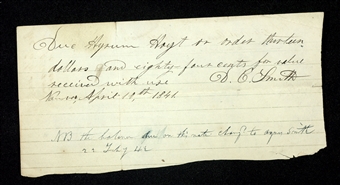 Due Hyrum Hoyt or order thirteen
dollars and eighty-four cents for value
received with use D. C. Smith
April 19th 1841
NB the balance due on this note to Smith
22 July 42